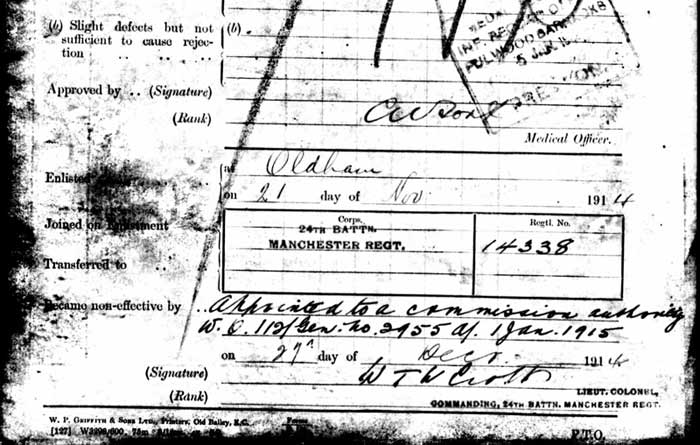 (b) Slight defects but not (b)
sufficient to cause rejec-
tion
INF. RECORD O
FULWOOD BARRACKS
5 JAN 15
PRESTON
Approved by .. (Signature)
(Rank)
Medical Officer.
Enlisted at Oldham
on 21 day of Nov 1914
Joined on Enlistment
Corps. Regtl. No.
24TH BATTN.
MANCHESTER REGT. 14338
Transferred to ..
Became non-effective by .. Appointed to a commission authority
W.O. 112/Gen. No. 2955 d/. 1 Jan. 1915
on 27th day of Decr. 1914
(Signature)
(Rank) LIEUT. COLONEL,
COMMANDING, 24TH BATTN. MANCHESTER REGT.
W. P. GRIFFITH & SONS LTD., Printers, Old Bailey, E.C.
[127] W3298/600. 75m
P.T.O.